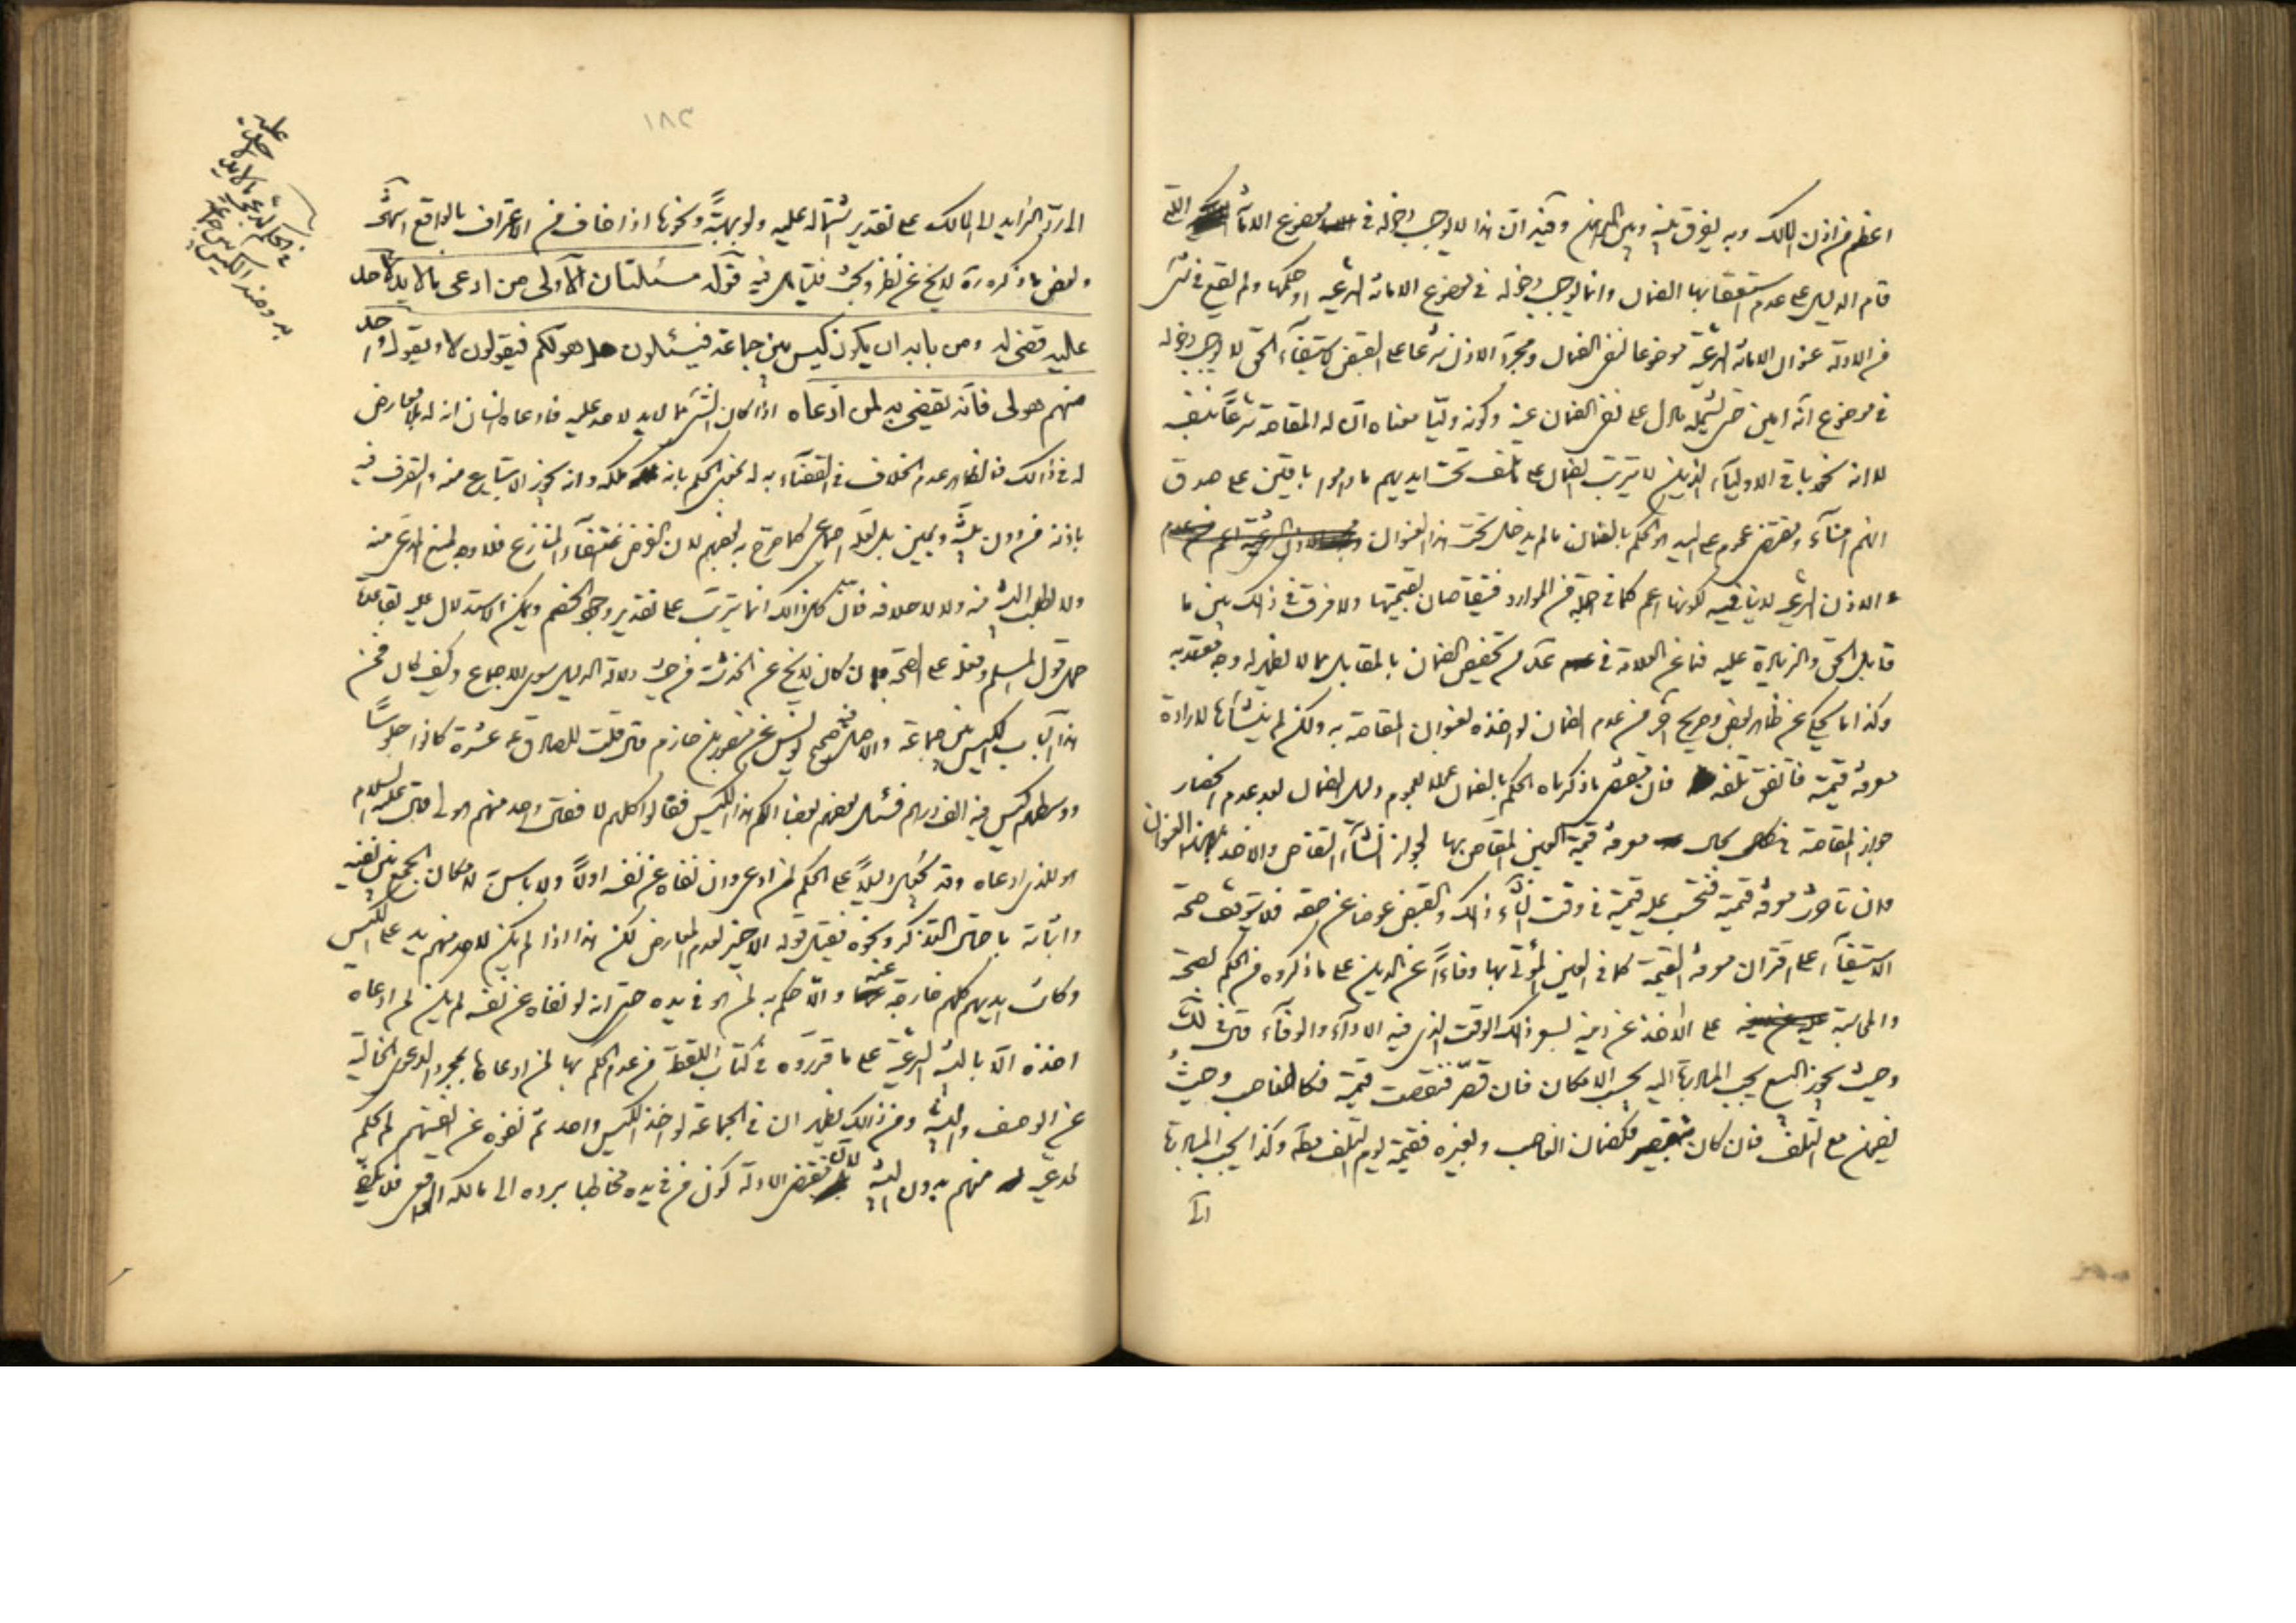 اعظم من اذن المالك وبه يفرق بينه وبين وفيه ان هذا لا يوجب دخوله في موضوع الامانة
قام الدليل على عدم استعقابها الضمان وانما يوجب دخوله في موضوع الامانة الشرعية او حكمها ولم يقع في شئ
من الادلة عنوان الامانة الشرعية موضوعا لنفي الضمان ومجرد الاذن شرعا على القبض لاستيفاء الحق لا يوجب دخوله
في موضوع انه امين حتى يشمله ما دل على نفي الضمان عنه وكونه وليا معناه ان له المقاصة شرعا بنفسه
لا انه كباقي الاولياء الذين لا يترتب الضمان على ما تلف تحت ايديهم ما داموا باقين على صدق
انهم امناء ومقتضى عموم على اليد هو الحكم بالضمان ما لم يدخل تحت هذا العنوان
والاذن الشرعي لا ينافيه لكونها اعم كما في جملة من الموارد فيتقاصان بقيمتها ولا فرق في ذلك بين ما
قابل الحق والزيادة عليه فما عن العلامة في عد من تخصيص الضمان بالمقابل مما لا يظهر له وجه يعتد به
وكذا ما يحكى عن ظاهر بعض وصريح اخر من عدم الضمان لو اخذه بعنوان المقاصة به ولكن لم ينشأها لارادة
معرفة قيمته فاتفق تلفه فان مقتضى ما ذكرناه الحكم بالضمان عملا بالعموم ودليل الضمان بعد عدم انحصار
جواز المقاصة في بحال معرفة قيمة العين المقاص بها لجواز انشاء التقاص والاخذ بهذا العنوان
وان تأخرت معرفة قيمته فتحسب عليه قيمته في وقت انشاء ذلك والقبض عوضا عن حقه فلا يتوقف صحة
الاستيفاء على اقتران معرفة القيمة كما في العين المؤتى بها وفاء عن الدين على ما ذكروه من الحكم بصحة
والمحاسبة على الاخذ عن دينه بسعر ذلك الوقت الذي فيه الاداء والوفاء قال في لك
وحيث يجوز البيع يجب المبادرة اليه بحسب الامكان فان قصر فنقصت قيمته فكالغاصب وحيث
يضمن مع التلف فان كان بتقصير فكضمان الغاصب وبغيره فقيمته يوم التلف مطلقا وكذا يجب المبادرة
الى
١٨٢
الى رد الزايد الى المالك على تقدير اشتماله عليه ولو بهبة ونحوها اذا خاف من الاعتراف بالواقع انتهى
وبعض ما ذكره ره لا يخ عن نظر وبحث فليتأمل فيه قوله مسئلتان الأولى من ادعى مالا يد لاحد
عليه قضى له ومن بابه ان يكون كيس بين جماعة فيسئلون هل هو لكم فيقولون لا ويقول واحد
منهم هو لى فانه يقضى به لمن ادعاه اذا كان الشئ مما لا يد لاحد عليه فادعاه انسان انه له بلا معارض
له في ذالك فالظاهر عدم الخلاف في القضاء به له بمعنى الحكم بانه ملكه وانه يجوز الابتياع منه والتصرف فيه
باذنه من دون بينة ويمين بل لعله اجماعي كما صرح به بعضهم لان الفرض انتفاء المنازع فلا وجه لمنع المدعى منه
ولا لطلب البينة منه ولا لاحلافه فان كل ذالك انما يترتب على تقدير وجود الخصم ويمكن الاستدلال عليه بقاعدة
حمل قول المسلم وفعله على الصحة وان كان لا يخ عن الخدشة من حيث دلالة الدليل سوى الاجماع وكيف كان فمن
هذا الباب الكيس بين جماعة والاصل فيه صحيح يونس عن منصور بن حازم قال قلت للصادق ع عشرة كانوا جلوسا
ووسطهم كيس فيه الف درهم فسئل بعضهم بعضا الكم هذا الكيس فقالوا كلهم لا فقال واحد منهم هو لي قال عليه السلام
هو للذي ادعاه وقد دليلا على الحكم لمن ادعى وان نفاه عن نفسه اولا ولا باس به لامكان الجمع بين نفيه
واثباته باحتمال التذكر ونحوه فيقبل قوله الاخير لعدم المعارض لكن هذا اذا لم يكن لاحد منهم يد على الكيس
وكانت ايديهم كلهم خارجة عنه والا حكم به لمن هو في يده حتى انه لو نفاه عن نفسه لم يكن لمن ادعاه
اخذه الا بالبينة الشرعية على ما قرروه في كتاب اللقطة من عدم الحكم بها لمن ادعاها بمجرد الدعوى الخالية
عن الوصف والبينة ومن ذالك يظهر ان في الجماعة لو اخذ الكيس واحد ثم نفوه عن انفسهم لم يحكم
لمدعيه منهم بدون البينة لان مقتضى الادلة كون من في يده مخاطبا برده الى مالكه الواقعي فلا يكفي
في الحكم لمدعى مالا يد
لاحد عليه
ومنه الكيس بين جماعة